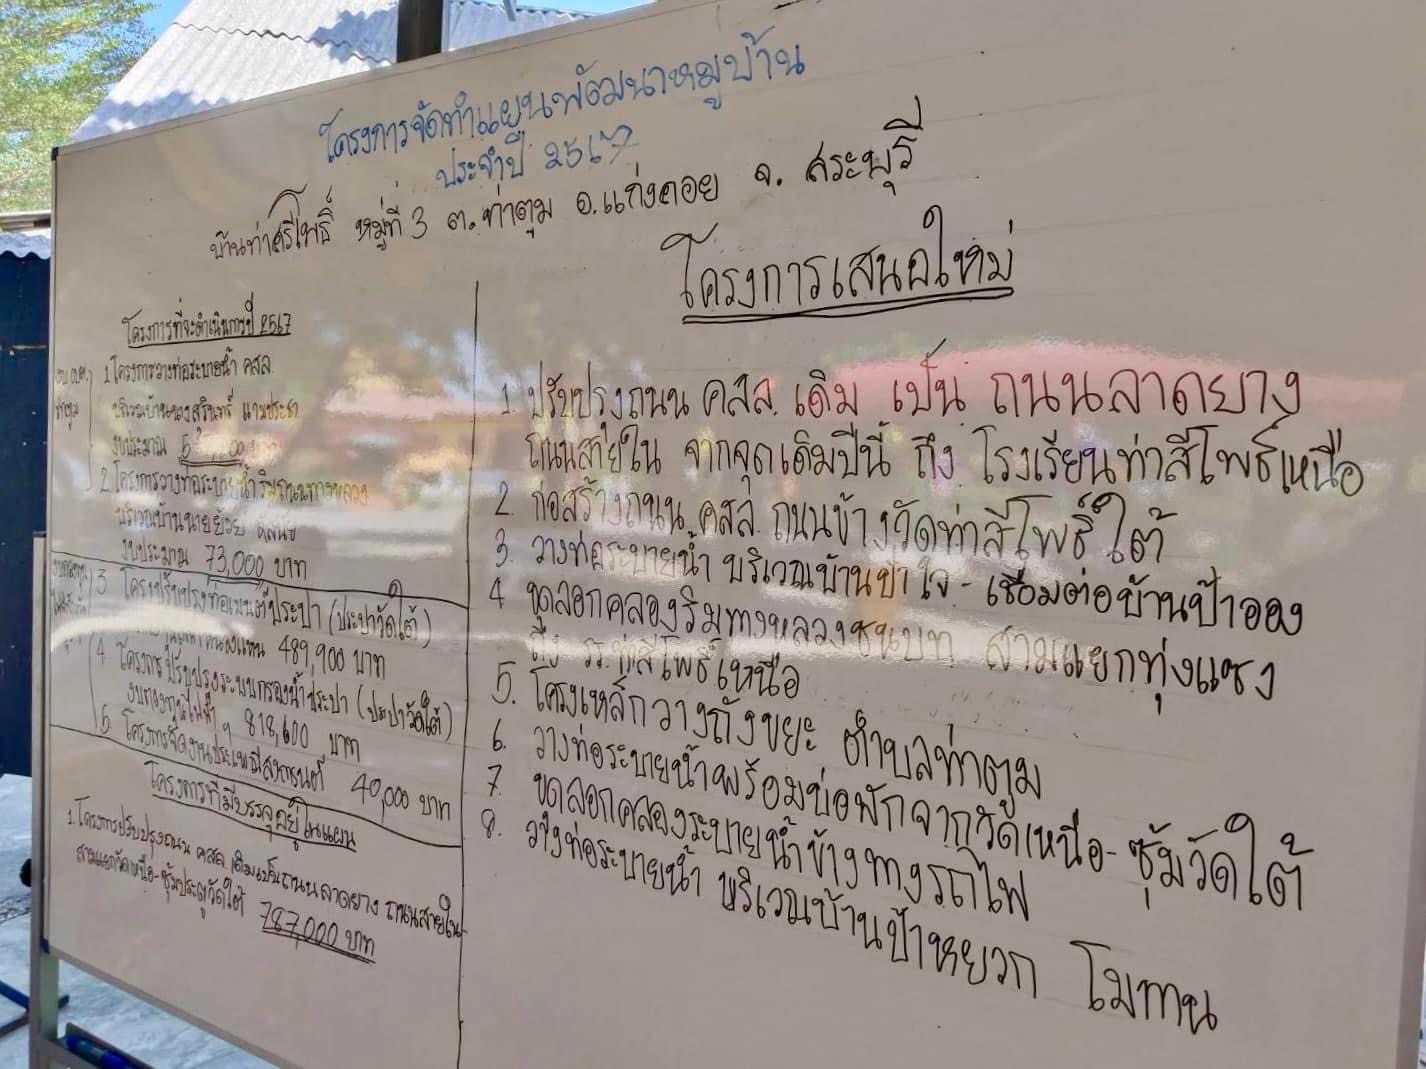 โครงการจัดทำแผนพัฒนาหมู่บ้าน
ประจำปี 2567
บ้านท่าศรีโพธิ์ หมู่ที่ 3 ต.ท่าตูม อ.แก่งคอย จ. สระบุรี
โครงการที่จะดำเนินการปี 2567
1.โครงการวางท่อระบายน้ำ คสล.
งบประมาณ
2.โครงการวางท่อระบายน้ำริมถนนทางหลวง
บริเวณบ้านนายย้อย
งบประมาณ 73,000 บาท
3 โครงปรับปรุงท่อเมนต์ประปา (ประปาวัดใต้)
489,900 บาท
4. โครงการปรับปรุงระบบกรองน้ำประปา (ประปาวัดใต้)
818,600 บาท
5 โครงการจัดงานประเพณีสงกรานต์ 40,000 บาท
โครงการที่มีบรรจุอยู่ในแผน
1.โครงการปรับปรุงถนน คสล.เดิมเป็นถนนลาดยาง ถนนสายใน
สามแยกวัดเหนือ-ซุ้มประตูวัดใต้ 787,000 บาท
โครงการเสนอใหม่
1. ปรับปรุงถนน คสล. เดิม เป็น ถนนลาดยาง
ถนนสายใน จากจุดเดิมปีนี้ ถึง โรงเรียนท่าสีโพธิ์เหนือ
2. ก่อสร้างถนน คสล. ถนนข้างวัดท่าสีโพธิ์ใต้
3. วางท่อระบายน้ำ บริเวณบ้านป้าใจ - เชื่อมต่อบ้านป้าออง
4 ขุดลอกคลองริมทางหลวงชนบท สามแยกทุ่งแซง
ถึง รร.ท่าสีโพธิ์เหนือ
5. โครงเหล็กวางถังขยะ ตำบลท่าตูม
6. วางท่อระบายน้ำพร้อมบ่อพักจากวัดเหนือ- ซุ้มวัดใต้
7. ขุดลอกคลองระบายน้ำข้างทางรถไฟ
8. วางท่อระบายน้ำ บริเวณบ้านป้าหยวก โมทาน